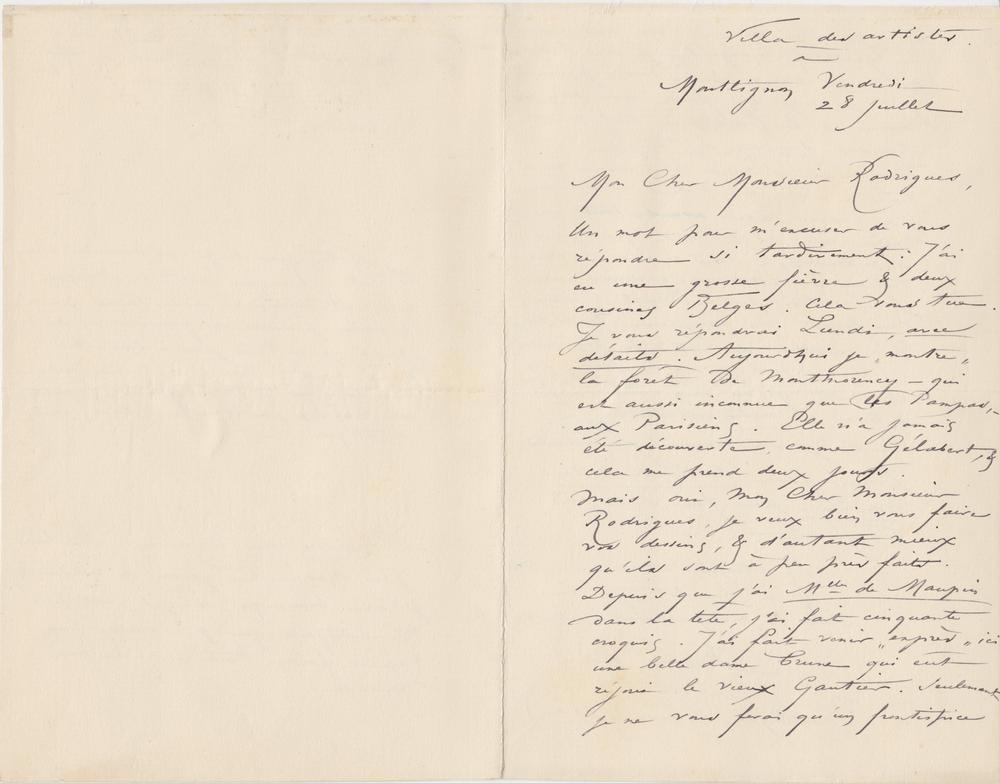 Villa des artistes.
Montlignon Vendredi
28 juillet
Mon Cher Monsieur Rodrigues,
Un mot pour m'excuser de vous
répondre si tardivement : J'ai
eu une grosse fièvre & deux
cousines Belges. Cela vous tue.
Je vous répondrai Lundi, avec
détails. Aujourdhui je „montre„
la forêt de Montmorency – qui
est aussi inconnue que les Pampas,
aux Parisiens. Elle n'a jamais
été découverte, comme &
cela me prend deux jours.
Mais oui, Mon Cher Monsieur
Rodrigues, je veux bien vous faire
vos dessins, & d'autant mieux
qu'ils sont à peu près faits.
Depuis que j'ai Melle de Maupin
dans la tete, j'ai fait cinquante
croquis. J'ai fait venir „exprès„ ici
une belle dame brune qui eut
réjoui le vieux Gautier. Seulement
je ne vous ferai qu'un frontispice